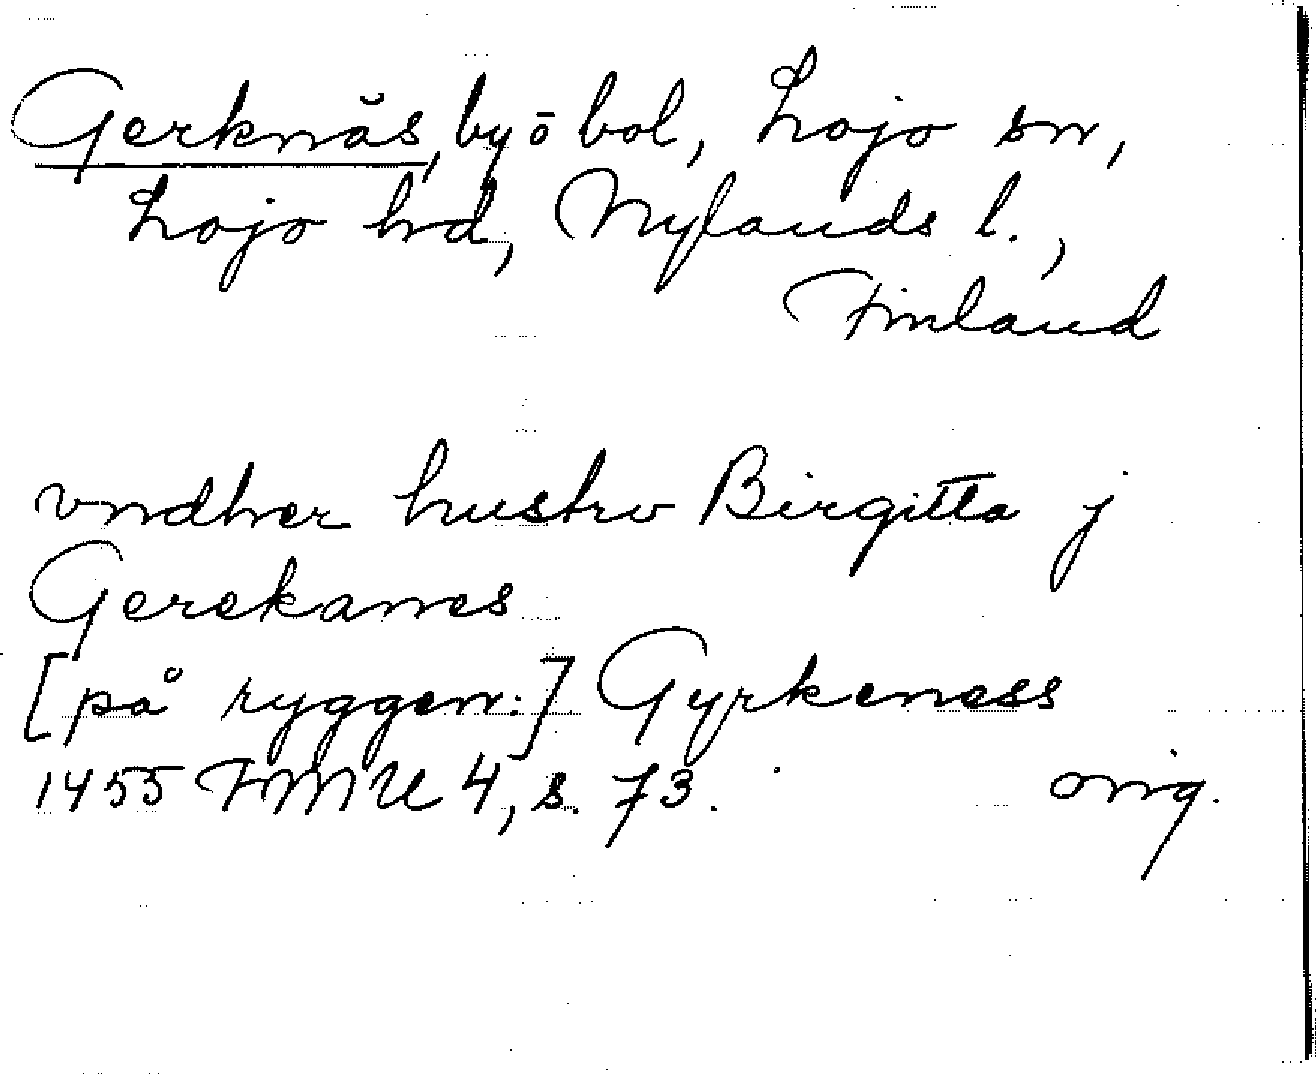 Gerknäs, by o bol, Lojo sn,
Lojo hd, Nylands l.,
Finland
vndher hustrv Birgitta j
Gerekanes
[på ryggen:] Gyrkeness
1455 FMU 4, s. 73. orig.